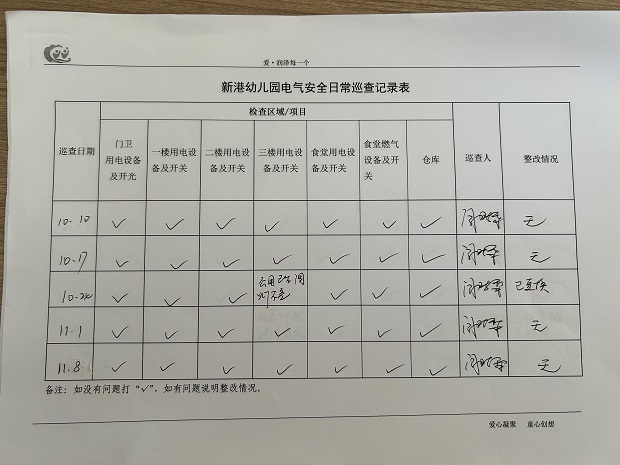 爱·润泽每一个
新港幼儿园电气安全日常巡查记录表
巡查日期 检查区域/项目 巡查人 整改情况
门卫用电设备及开光 一楼用电设备及开关 二楼用电设备及开关 三楼用电设备及开关 食堂用电设备及开关 食堂燃气设备及开关 仓库
10.10 ✓ ✓ ✓ ✓ ✓ ✓ ✓ 无
10.17 ✓ ✓ ✓ ✓ ✓ ✓ ✓ 无
10.24 ✓ ✓ ✓ 灯不亮 ✓ ✓ ✓
11.1 ✓ ✓ ✓ ✓ ✓ ✓ ✓ 无
11.8 ✓ ✓ ✓ ✓ ✓ ✓ ✓ 无
备注：如没有问题打“✓”，如有问题说明整改情况。
爱心凝聚 童心创想